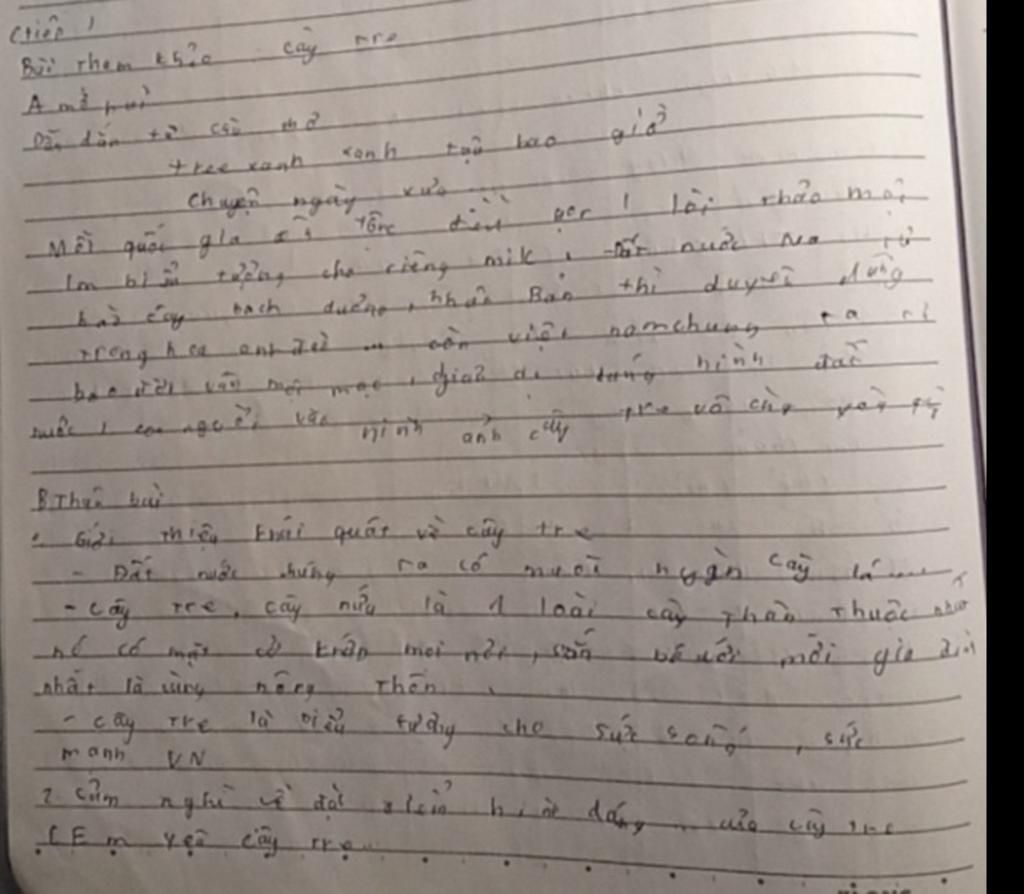 (tiếp)
Bài tham khảo cây tre
A mở bài
Dẫn dắn từ câu thơ
tree xanh xanh tựu bao giờ
chuyện ngày xưa
Mỗi quốc gia 1 loài thảo mọi
làm biểu tượng cho riêng mik, đất nước Na
bạch dương, nhật Bản thì duyên dáng
trong hoa anh đào ... còn việt nam chung ta
bao đời vẫn mộc mạc, giải dị dáng hình đất
nước, con người, hình anh cây tre vô cùng
B Thân bài
1. Giới thiệu khái quát về cây tre
- Đất nước chúng ta có mười ngàn cây lá ....
- cây tre, cây nứa là 1 loài cây thân thuộc nhất
nó có mặt ở khắp mọi nơi, gắn bó với mỗi gia đình
nhất là vùng nông thôn
- cây tre là biểu tượng cho sức sống, sức
mạnh VN
2. cảm nghĩ về đặc điểm hình dáng của cây tre
( Em yêu cây tre